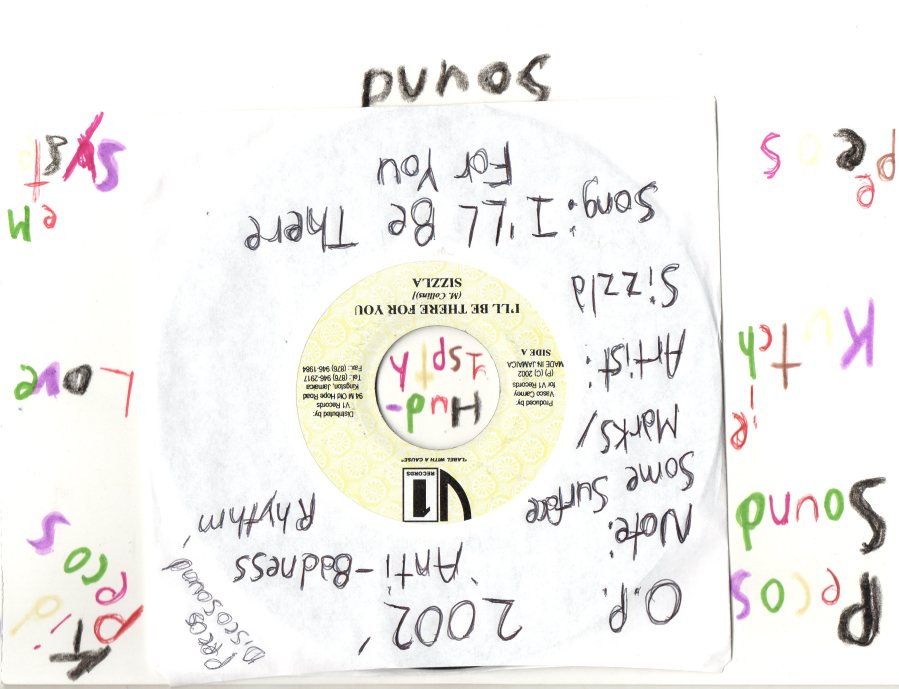 Pecos
Sound
Kutch
ie
O.P. 2002'
'Anti-Badness
Rhythm'
Note:
Some Surface
Marks/
Artist:
Sizzla
Song: I'LL Be There
For You
V1
RECORDS
"LABEL WITH A CAUSE"
Produced by:
Vasco Carney
for V1 Records
(P) (C) 2002
MADE IN JAMAICA
SIDE A
Distributed by:
V1 Records
94 M Old Hope Road
Kingston, Jamaica
Tel: (876) 946-2917
Fax: (876) 946-1984
I'LL BE THERE FOR YOU
(M. Collins)]
SIZZLA
Hud-
Discosound
Love
Syst
em
Sound